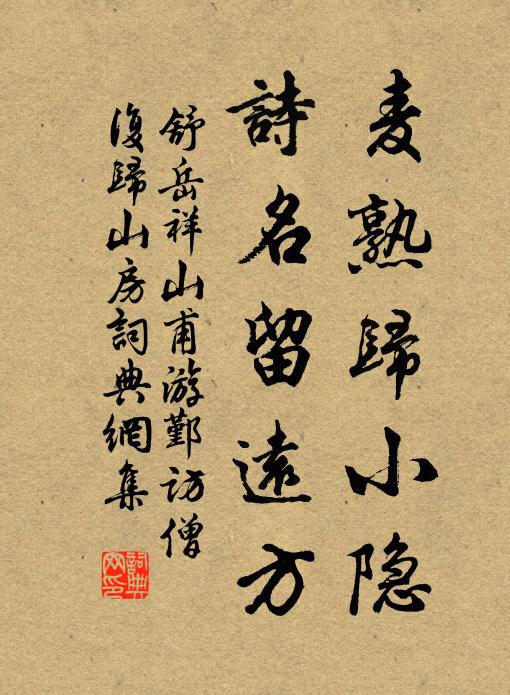 麦熟歸小隐
詩名留遠方
舒岳祥山甫游鄞访僧
復歸山房詞典網集
詞典網印